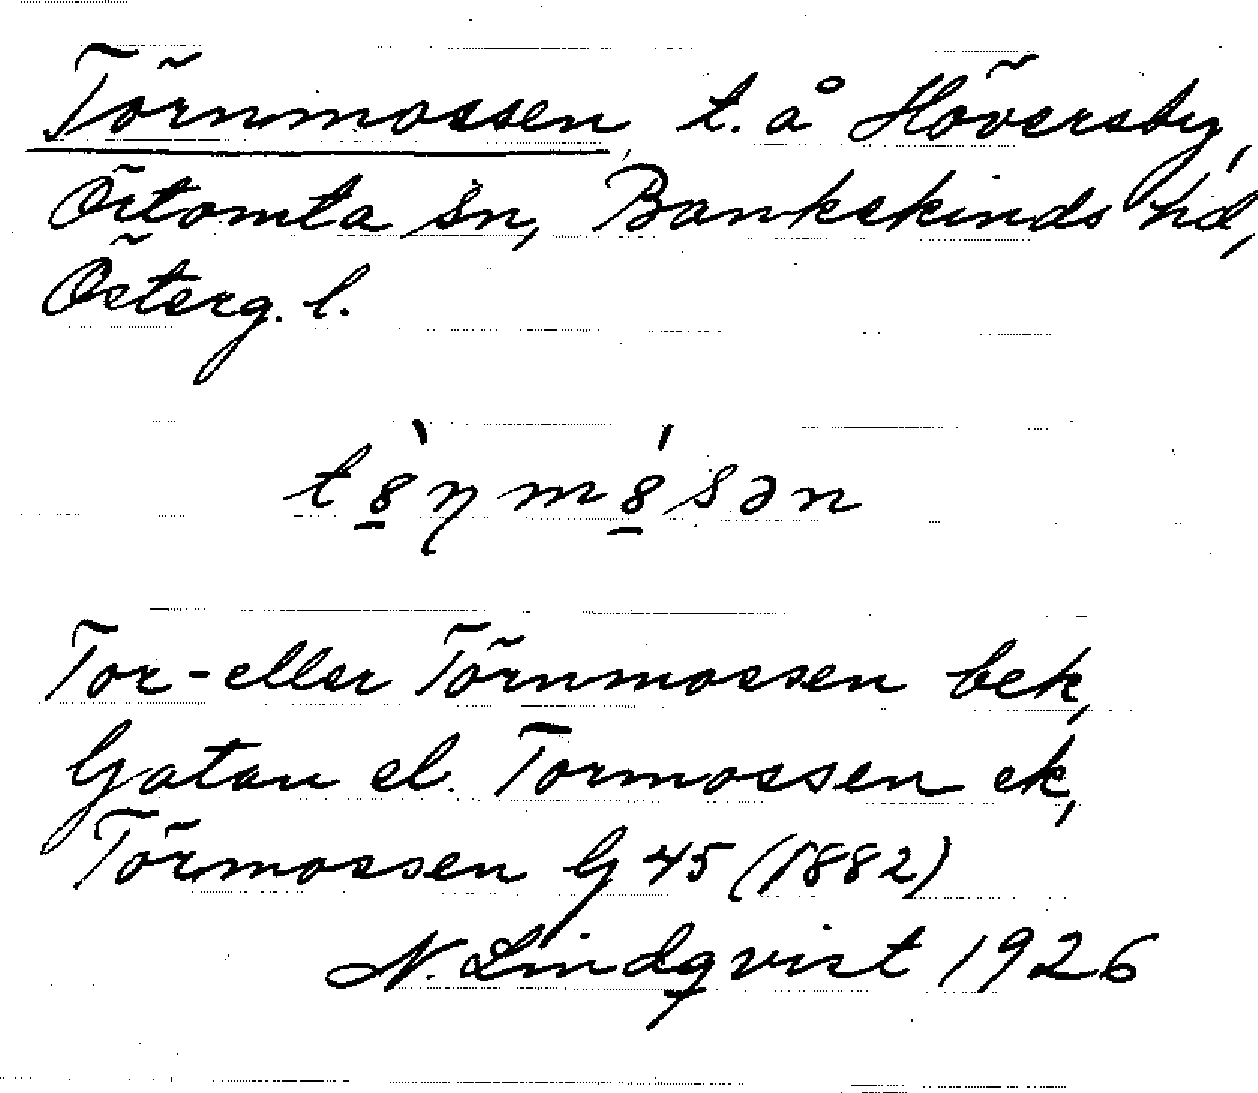 Törnmossen, t. å Höversby,
Örtomta sn, Bankekinds hd,
Österg. l.
tö̀ɳmö́sən
Tor- eller Törnmossen bek,
Gatan el. Tormossen ek,
Törmossen G 45 (1882)
N. Lindqvist 1926